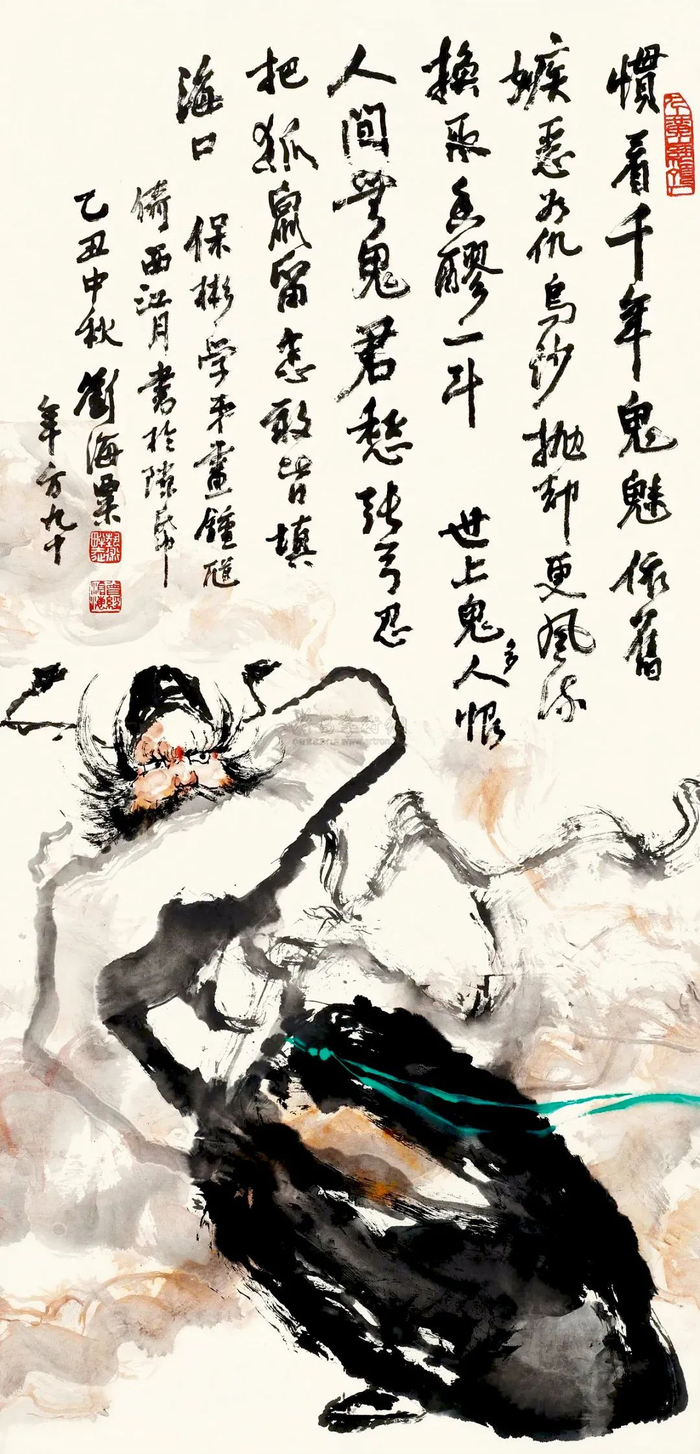 慣看千年鬼魅依舊
嫉惡如仇烏紗抛却更風流
換取香醪一斗 世上鬼多人恨
人間無鬼君愁张弓忍
把狐鼠留恣皆填
海口 保彬學弟畫鍾馗
倚西江月書於隙
乙丑中秋 劉海粟
年方九十